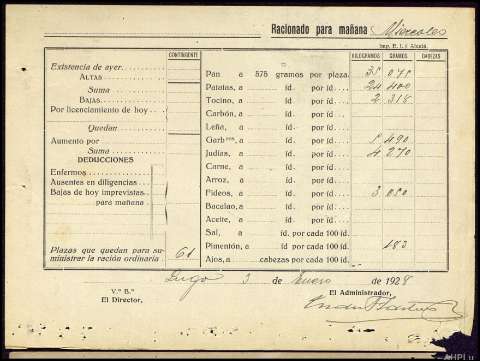 Racionado para mañana Miércoles
Imp. E. L. y Abadá.
CONTINGENTE
Existencia de ayer
ALTAS
Suma
BAJAS
Por licenciamiento de hoy
Quedan
Aumento por
Suma
DEDUCCIONES
Enfermos
Ausentes en diligencias
Bajas de hoy imprevistas
para mañana
Plazas que quedan para su-
ministrar la ración ordinaria 61
KILOGRAMOS GRAMOS CABEZAS
Pan a 575 gramos por plaza. 35 075
Patatas, a íd. por íd. 24 400
Tocino, a íd. por íd. 2 318
Carbón, a íd. por íd.
Leña, a íd. por íd.
Garbzos, a íd. por íd. 5 490
Judías, a íd. por íd. 4 270
Carne, a íd. por íd.
Arroz, a íd. por íd.
Fideos, a íd. por íd. 3 050
Bacalao, a íd. por íd.
Aceite, a íd. por íd.
Sal, a íd. por cada 100 íd.
Pimentón, a íd. por cada 100 íd. 183
Ajos, a cabezas por cada 100 íd.
Lugo 3 de Enero de 1928
V.º B.º
El Director,
El Administrador,
AHPLu